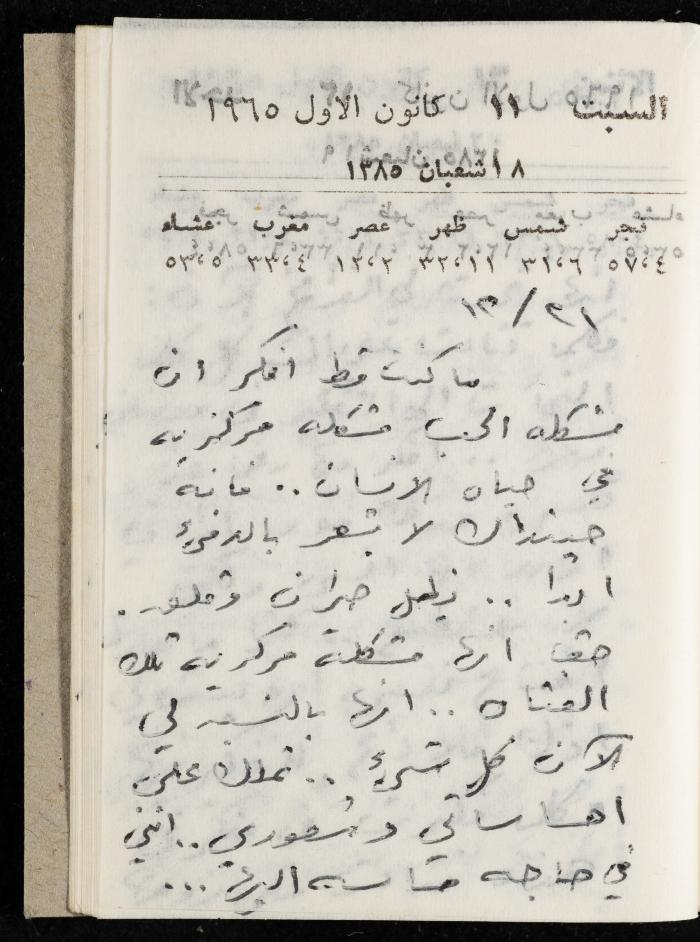 السبت ١١ كانون الاول ١٩٦٥
١٨ شعبان ١٣٨٥
فجر شمس ظهر عصر مغرب عشاء
٥٧،٤ ٣١،٦ ٣٢،١١ ١٣،٢ ٣٣،٤ ٥٣،٥
١٢/٢١
ما كنت قط افكر ان
مشكله الحب مشكله مركزيه
في حياه الانسان .. فانه
حينذاك لا يشعر بالدفئ
ابدا .. حيران وقلق.
حقا انها مشكلة مركزيه تلك
الفتاه .. انها بالنسبه لي
الآن كل شيئ .. تملك علي
احساساتي وشعوري .. انني
في حاجه ماسه اليها ...